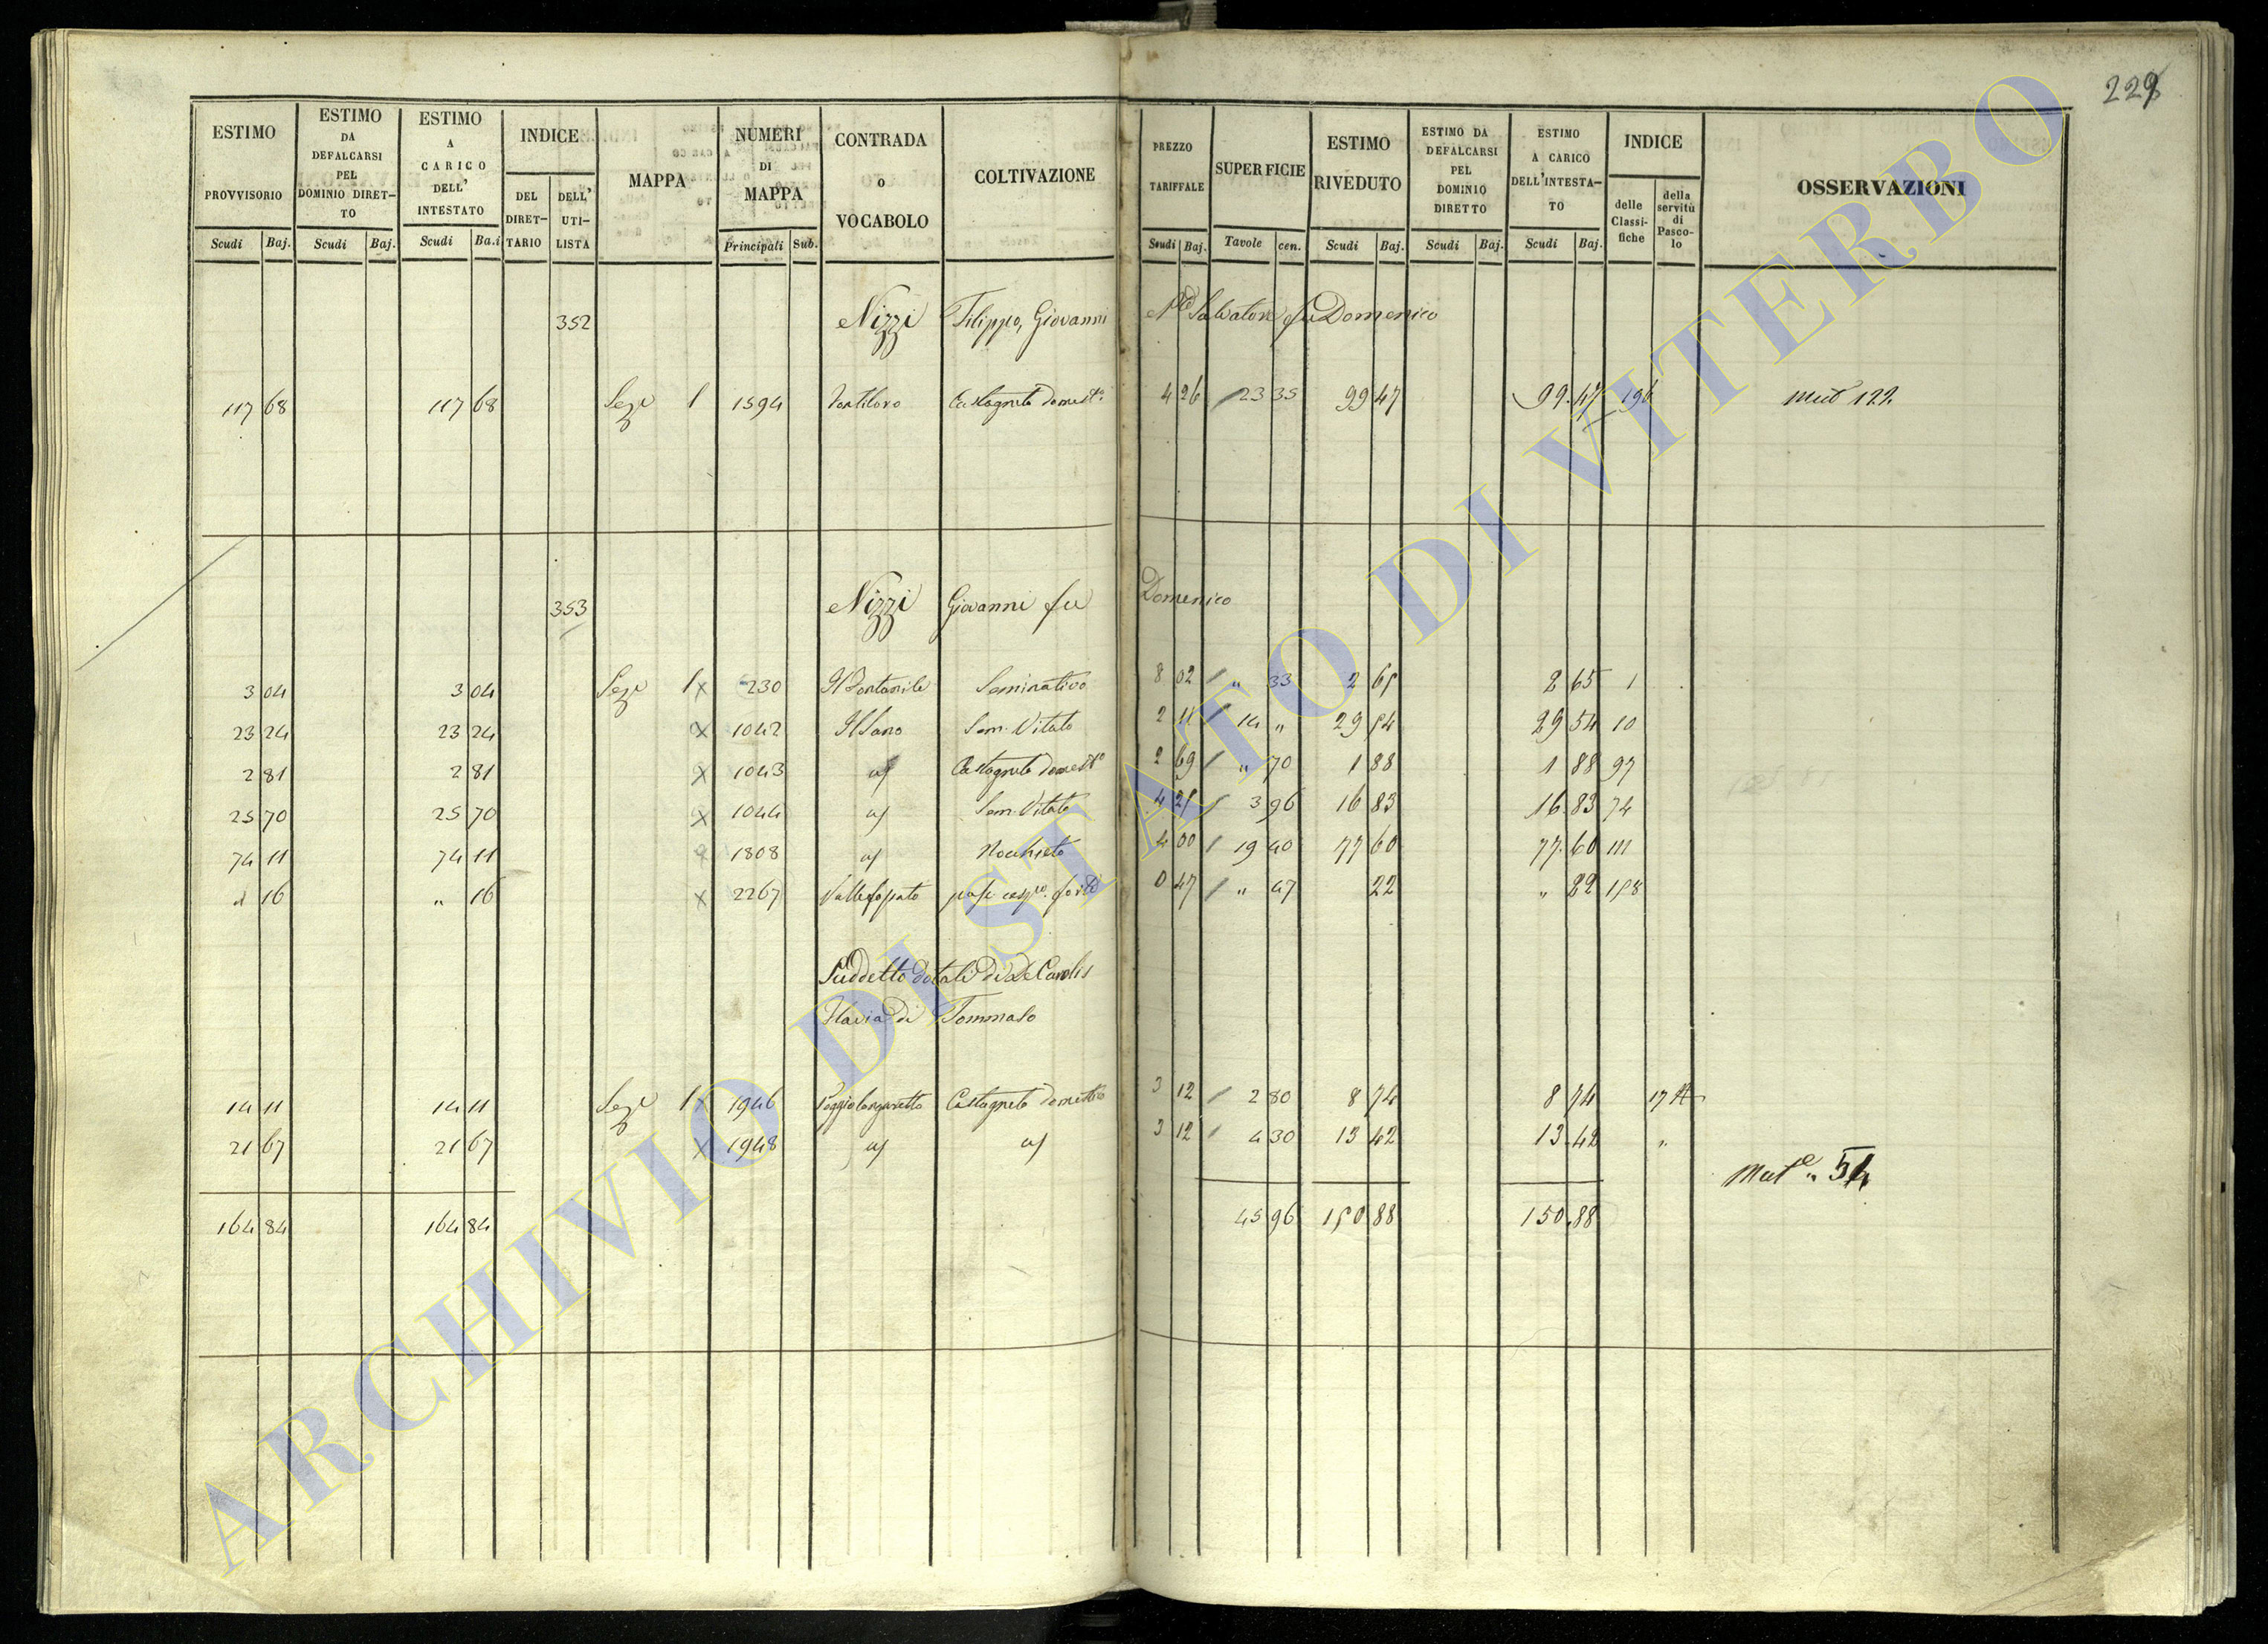 229
ESTIMO PROVVISORIO Scudi Baj.
ESTIMO DA DEFALCARSI PEL DOMINIO DIRET-TO Scudi Baj.
ESTIMO A CARICO DELL' INTESTATO Scudi Ba.i
INDICE DEL DIRET-TARIO DELL' UTI-LISTA
MAPPA
NUMERI DI MAPPA Principali Sub.
CONTRADA O VOCABOLO
COLTIVAZIONE
PREZZO TARIFFALE Scudi Baj.
SUPERFICIE Tavole cen.
ESTIMO RIVEDUTO Scudi Baj.
ESTIMO DA DEFALCARSI PEL DOMINIO DIRETTO Scudi Baj.
ESTIMO A CARICO DELL'INTESTA-TO Scudi Baj.
INDICE delle Classi-fiche della servitù di Pasco-lo
OSSERVAZIONI
352 Nizzi Filippo, Giovanni Salvatore fu Domenico
117 68 117 68 Sez 1 1594 Castagneto domest.o 4 26 23 35 99 47 99.47 196 Mut 122
353 Nizzi Giovanni fu Domenico
3 04 3 04 Sez 1 x 230 Il Fontanile Seminativo 8 02 " 33 2 65 2 65 1
23 24 23 24 x 1042 Il Sano Sem. Vitato 2 11 14 " 29 54 29 54 10
2 81 2 81 x 1043 Castagneto domest.o 2 69 " 70 1 88 1 88 97
25 70 25 70 x 1044 Sem. Vitato 4 25 3 96 16 83 16.83 74
74 11 74 11 1808 Nocchieto 4 00 19 40 77 60 77.60 111
" 16 " 16 x 2267 0 47 " 47 22 " 22 158
Suddetto dotali di De Carolis
Flavia di Tommaso
14 11 14 11 Sez 1 x 1946 Castagneto domestico 3 12 2 80 8 74 8 74 17 A
21 67 21 67 x 1948 3 12 4 30 13 42 13.42 "
Mut.e " 54
164 84 164 84 45 96 150 88 150.88
ARCHIVIO DI STATO DI VITERBO